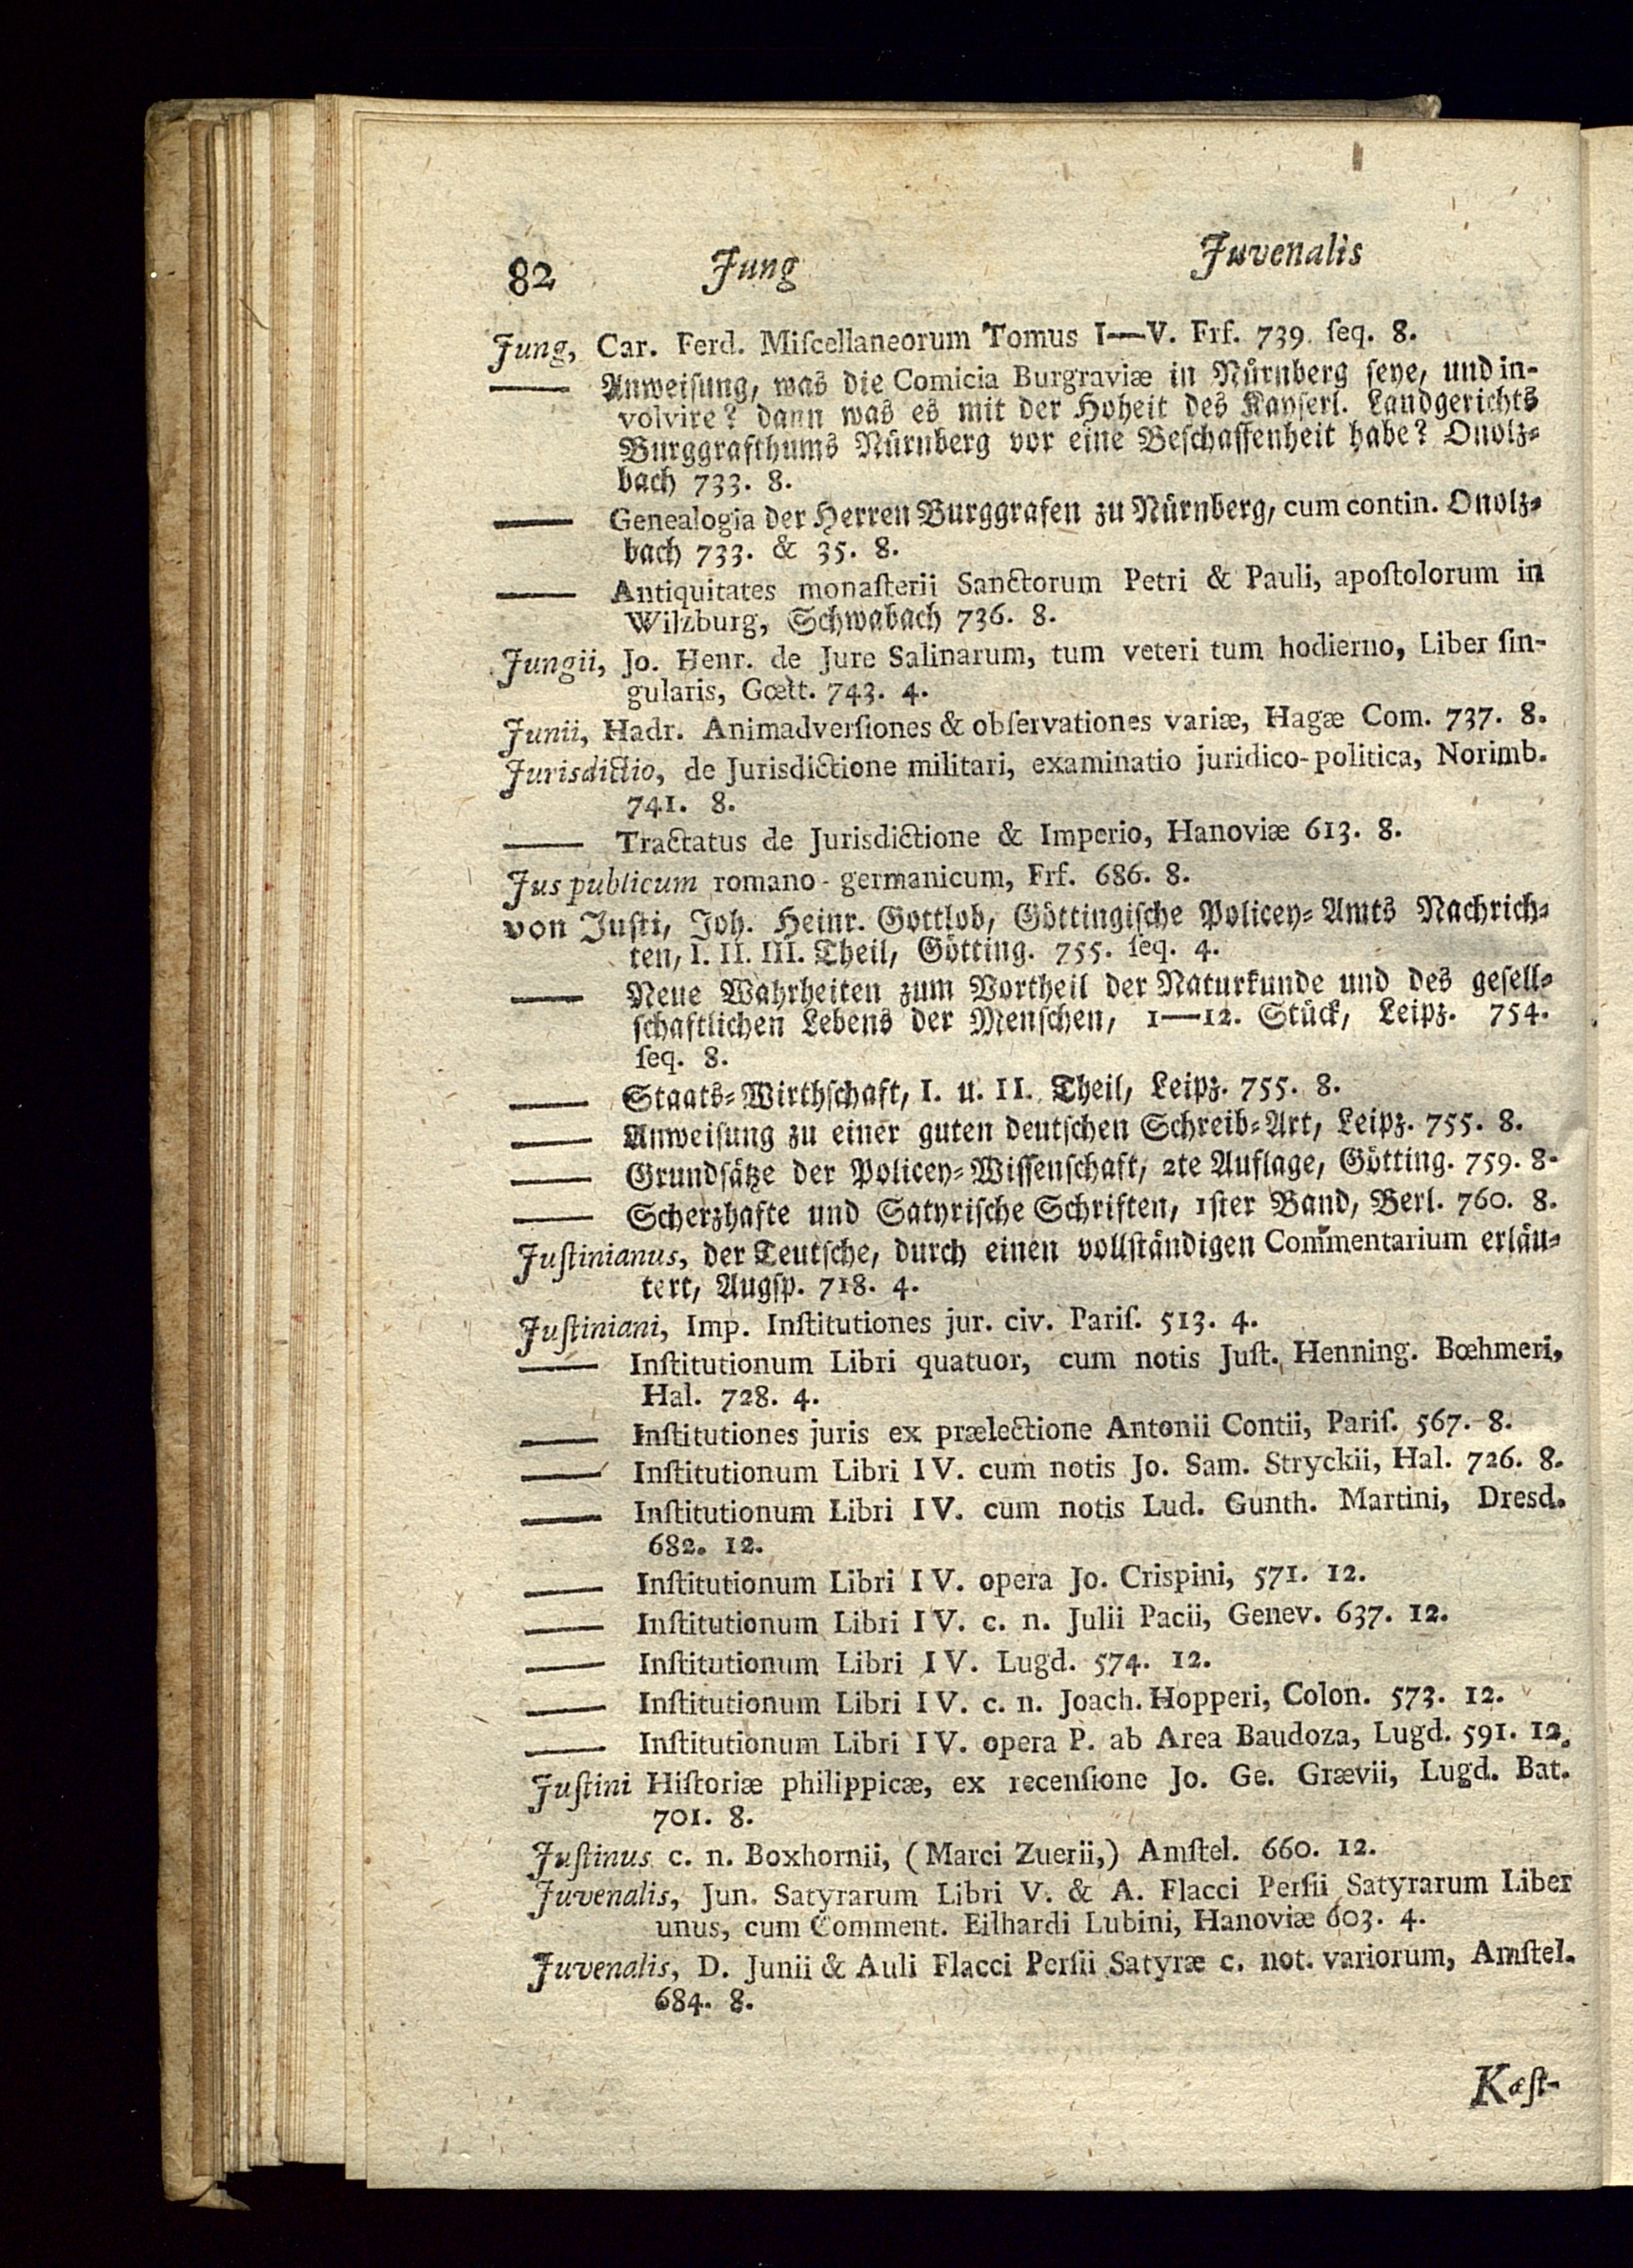 82 Jung Juvenalis
Jung, Car. Ferd. Miſcellaneorum Tomus I—V. Frf. 739. ſeq. 8.
— Anweiſung, was die Comicia Burgraviæ in Nürnberg ſeye, und in-
volvire? dann was es mit der Hoheit des Kayſerl. Landgerichts
Burggrafthums Nürnberg vor eine Beſchaffenheit habe? Onolz-
bach 733. 8.
— Genealogia der Herren Burggrafen zu Nürnberg, cum contin. Onolz-
bach 733. & 35. 8.
— Antiquitates monaſterii Sanctorum Petri & Pauli, apoſtolorum in
Wilzburg, Schwabach 736. 8.
Jungii, Jo. Henr. de Jure Salinarum, tum veteri tum hodierno, Liber ſin-
gularis, Gœtt. 743. 4.
Junii, Hadr. Animadverſiones & obſervationes variæ, Hagæ Com. 737. 8.
Jurisdictio, de Jurisdictione militari, examinatio juridico-politica, Norimb.
741. 8.
— Tractatus de Jurisdictione & Imperio, Hanoviæ 613. 8.
Jus publicum romano-germanicum, Frf. 686. 8.
von Juſti, Joh. Heinr. Gottlob, Göttingiſche Policey-Amts Nachrich-
ten, I. II. III. Theil, Götting. 755. ſeq. 4.
— Neue Wahrheiten zum Vortheil der Naturkunde und des geſell-
ſchaftlichen Lebens der Menſchen, 1—12. Stück, Leipz. 754.
ſeq. 8.
— Staats-Wirthſchaft, I. u. II. Theil, Leipz. 755. 8.
— Anweiſung zu einer guten deutſchen Schreib-Art, Leipz. 755. 8.
— Grundſätze der Policey-Wiſſenſchaft, 2te Auflage, Götting. 759. 8.
— Scherzhafte und Satyriſche Schriften, 1ſter Band, Berl. 760. 8.
Juſtinianus, der Teutſche, durch einen vollſtändigen Com̃entarium erläu-
tert, Augſp. 718. 4.
Juſtiniani, Imp. Inſtitutiones jur. civ. Pariſ. 513. 4.
— Inſtitutionum Libri quatuor, cum notis Juſt. Henning. Bœhmeri,
Hal. 728. 4.
— Inſtitutiones juris ex prælectione Antonii Contii, Pariſ. 567. 8.
— Inſtitutionum Libri IV. cum notis Jo. Sam. Stryckii, Hal. 726. 8.
— Inſtitutionum Libri IV. cum notis Lud. Gunth. Martini, Dresd.
682. 12.
— Inſtitutionum Libri IV. opera Jo. Crispini, 571. 12.
— Inſtitutionum Libri IV. c. n. Julii Pacii, Genev. 637. 12.
— Inſtitutionum Libri IV. Lugd. 574. 12.
— Inſtitutionum Libri IV. c. n. Joach. Hopperi, Colon. 573. 12.
— Inſtitutionum Libri IV. opera P. ab Area Baudoza, Lugd. 591. 12.
Juſtini Hiſtoriæ philippicæ, ex recenſione Jo. Ge. Grævii, Lugd. Bat.
701. 8.
Juſtinus c. n. Boxhornii, (Marci Zuerii,) Amſtel. 660. 12.
Juvenalis, Jun. Satyrarum Libri V. & A. Flacci Perſii Satyrarum Liber
unus, cum Comment. Eilhardi Lubini, Hanoviæ 603. 4.
Juvenalis, D. Junii & Auli Flacci Perſii Satyræ c. not. variorum, Amſtel.
684. 8.
Kæſt-